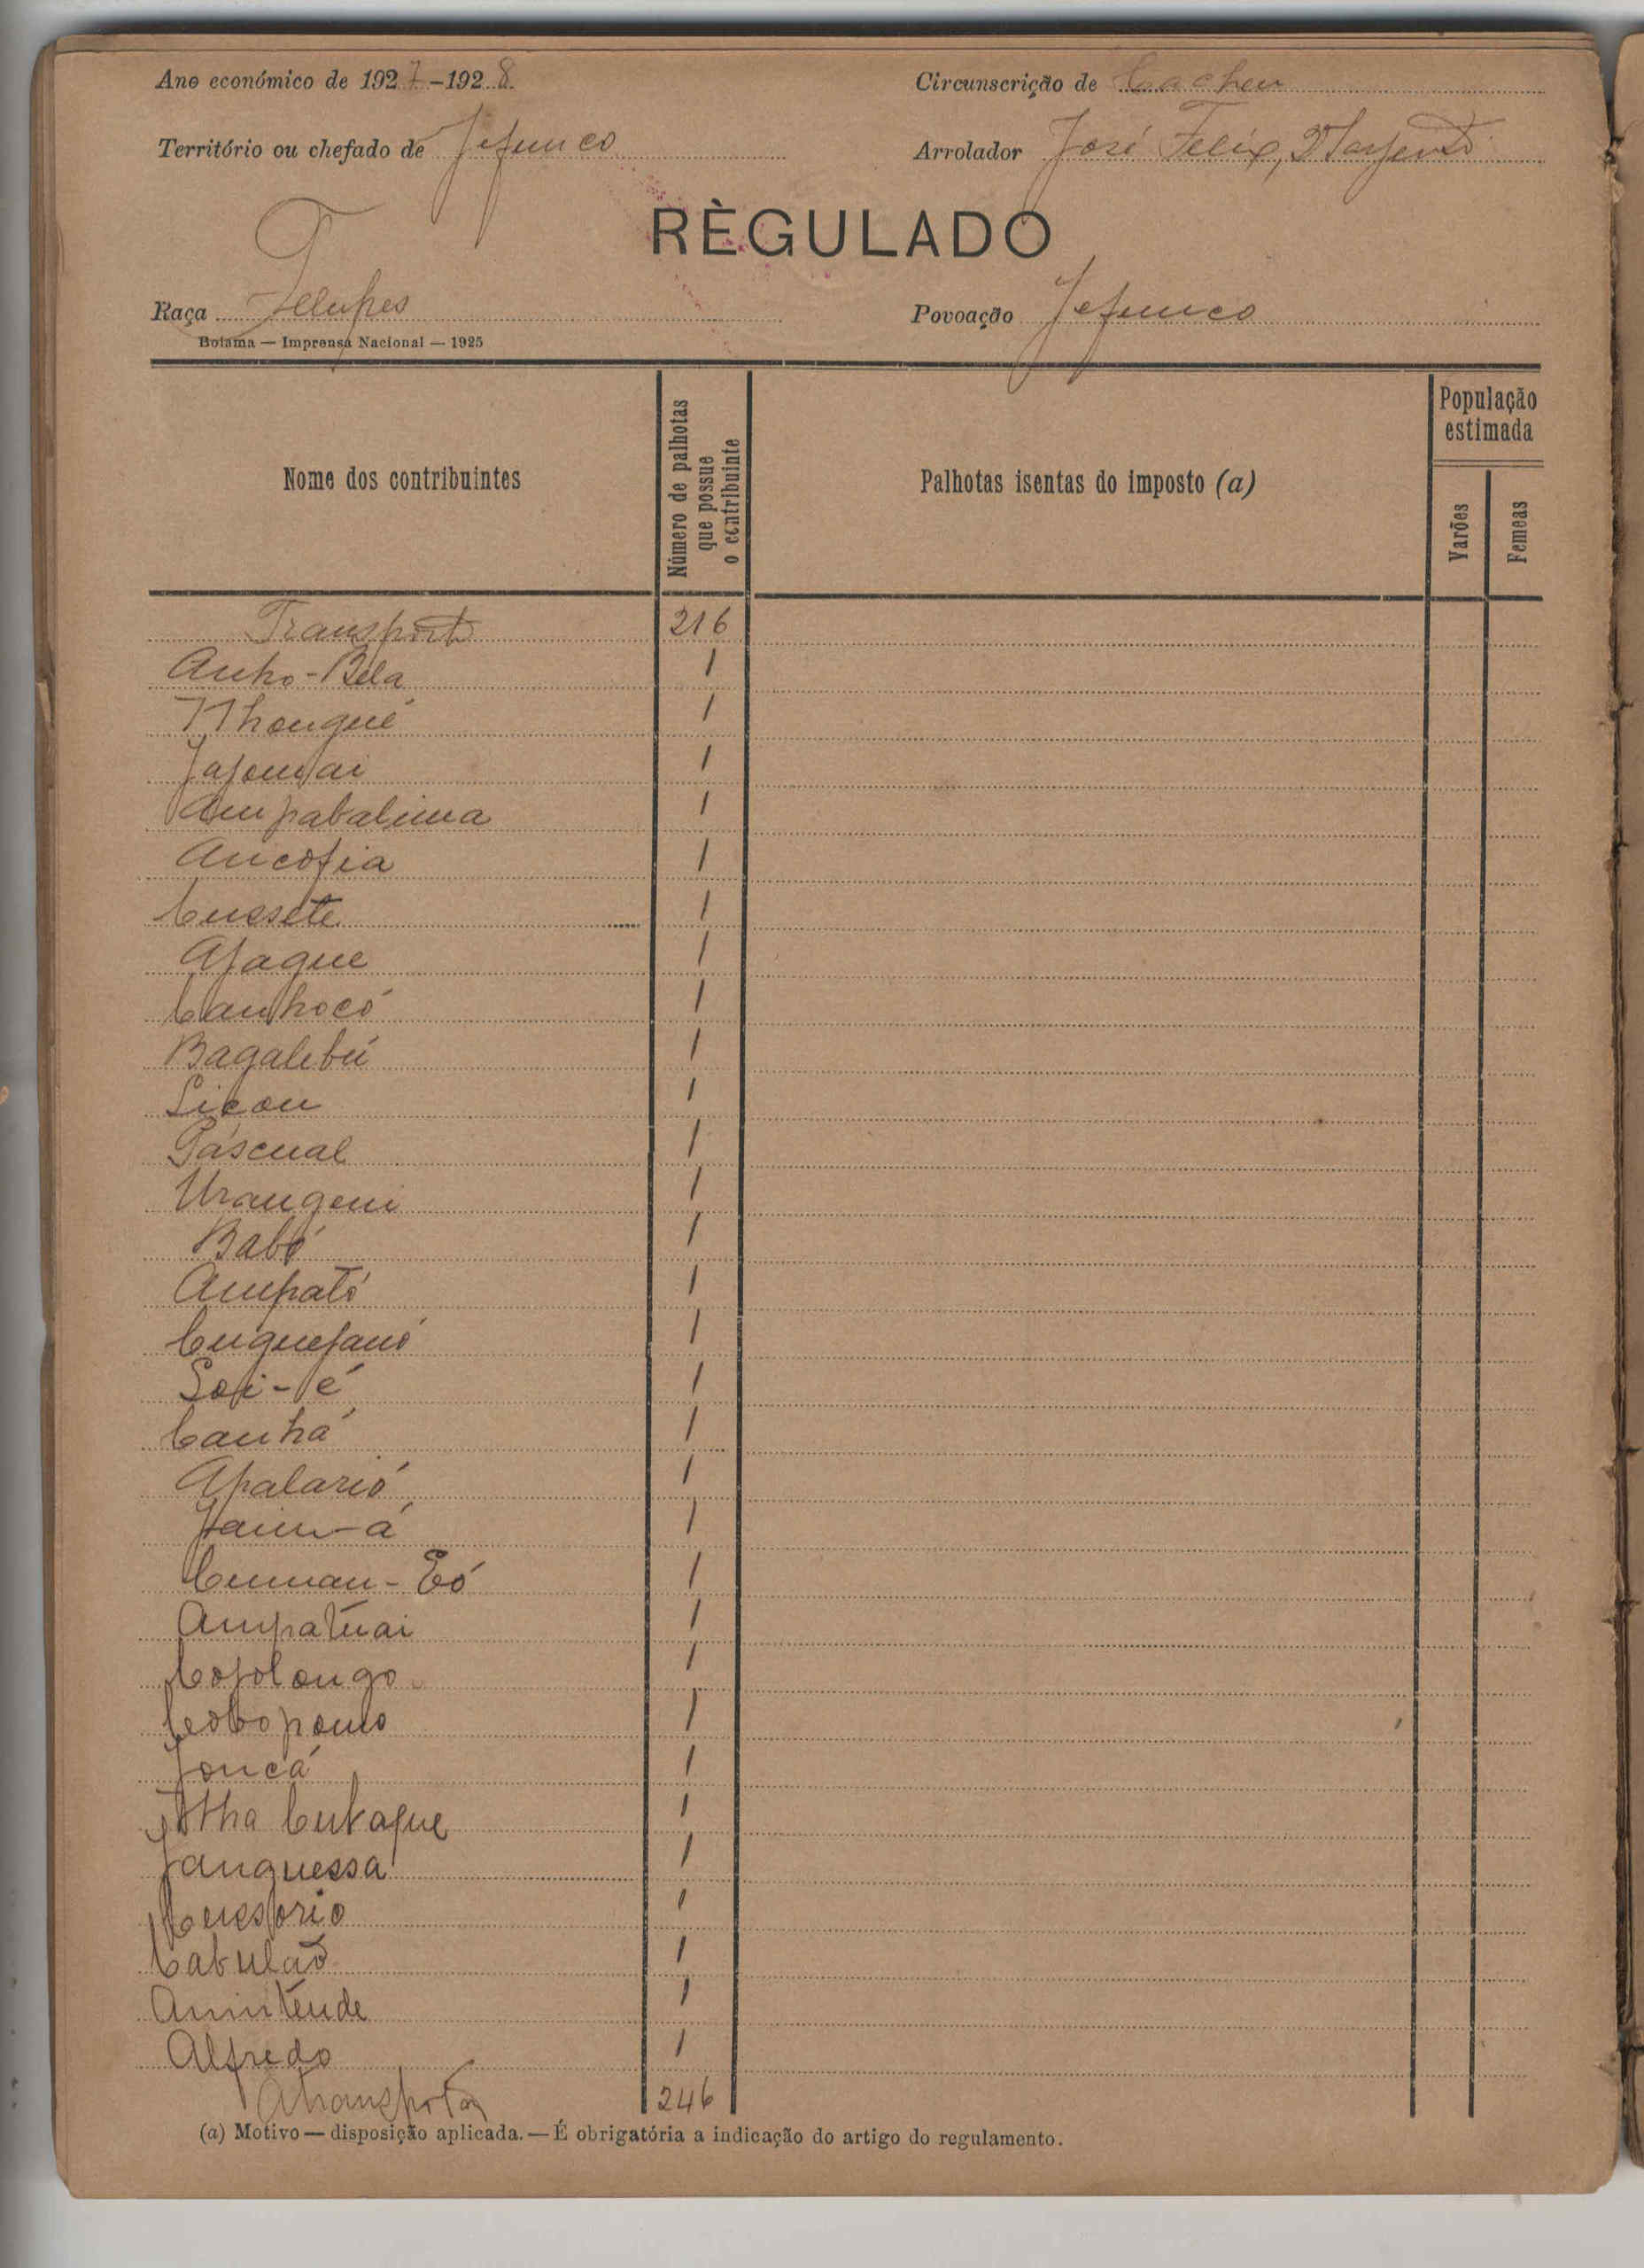 Ano económico de 1927-1928 Circunscrição de Cacheu
Território ou chefado de Jefunco Arrolador José Felix, 2º Sargento
RÈGULADO
Raça Felupes Povoação Jefunco
Bolama — Imprensa Nacional — 1925
Nome dos contribuintes
Número de palhotas
que possue
o contribuinte
Palhotas isentas do imposto (a)
População
estimada
Varões
Femeas
Transporte 216
Anho-Bela 1
Nhongué 1
1
Ampabalima 1
Ancofia 1
Cussete 1
Ajaque 1
Canhocó 1
Bagalebú 1
Licon 1
Páscual 1
Urangeni 1
Babó 1
Ampató 1
1
1
Canhá 1
Apalarió 1
1
Cuman-Eó 1
Ampatuai 1
Cojolongo 1
1
Joncá 1
1
Janquessa 1
1
Cabulão 1
Amintende 1
Alfredo 1
A transportar 246
(a) Motivo — disposição aplicada. — É obrigatória a indicação do artigo do regulamento.